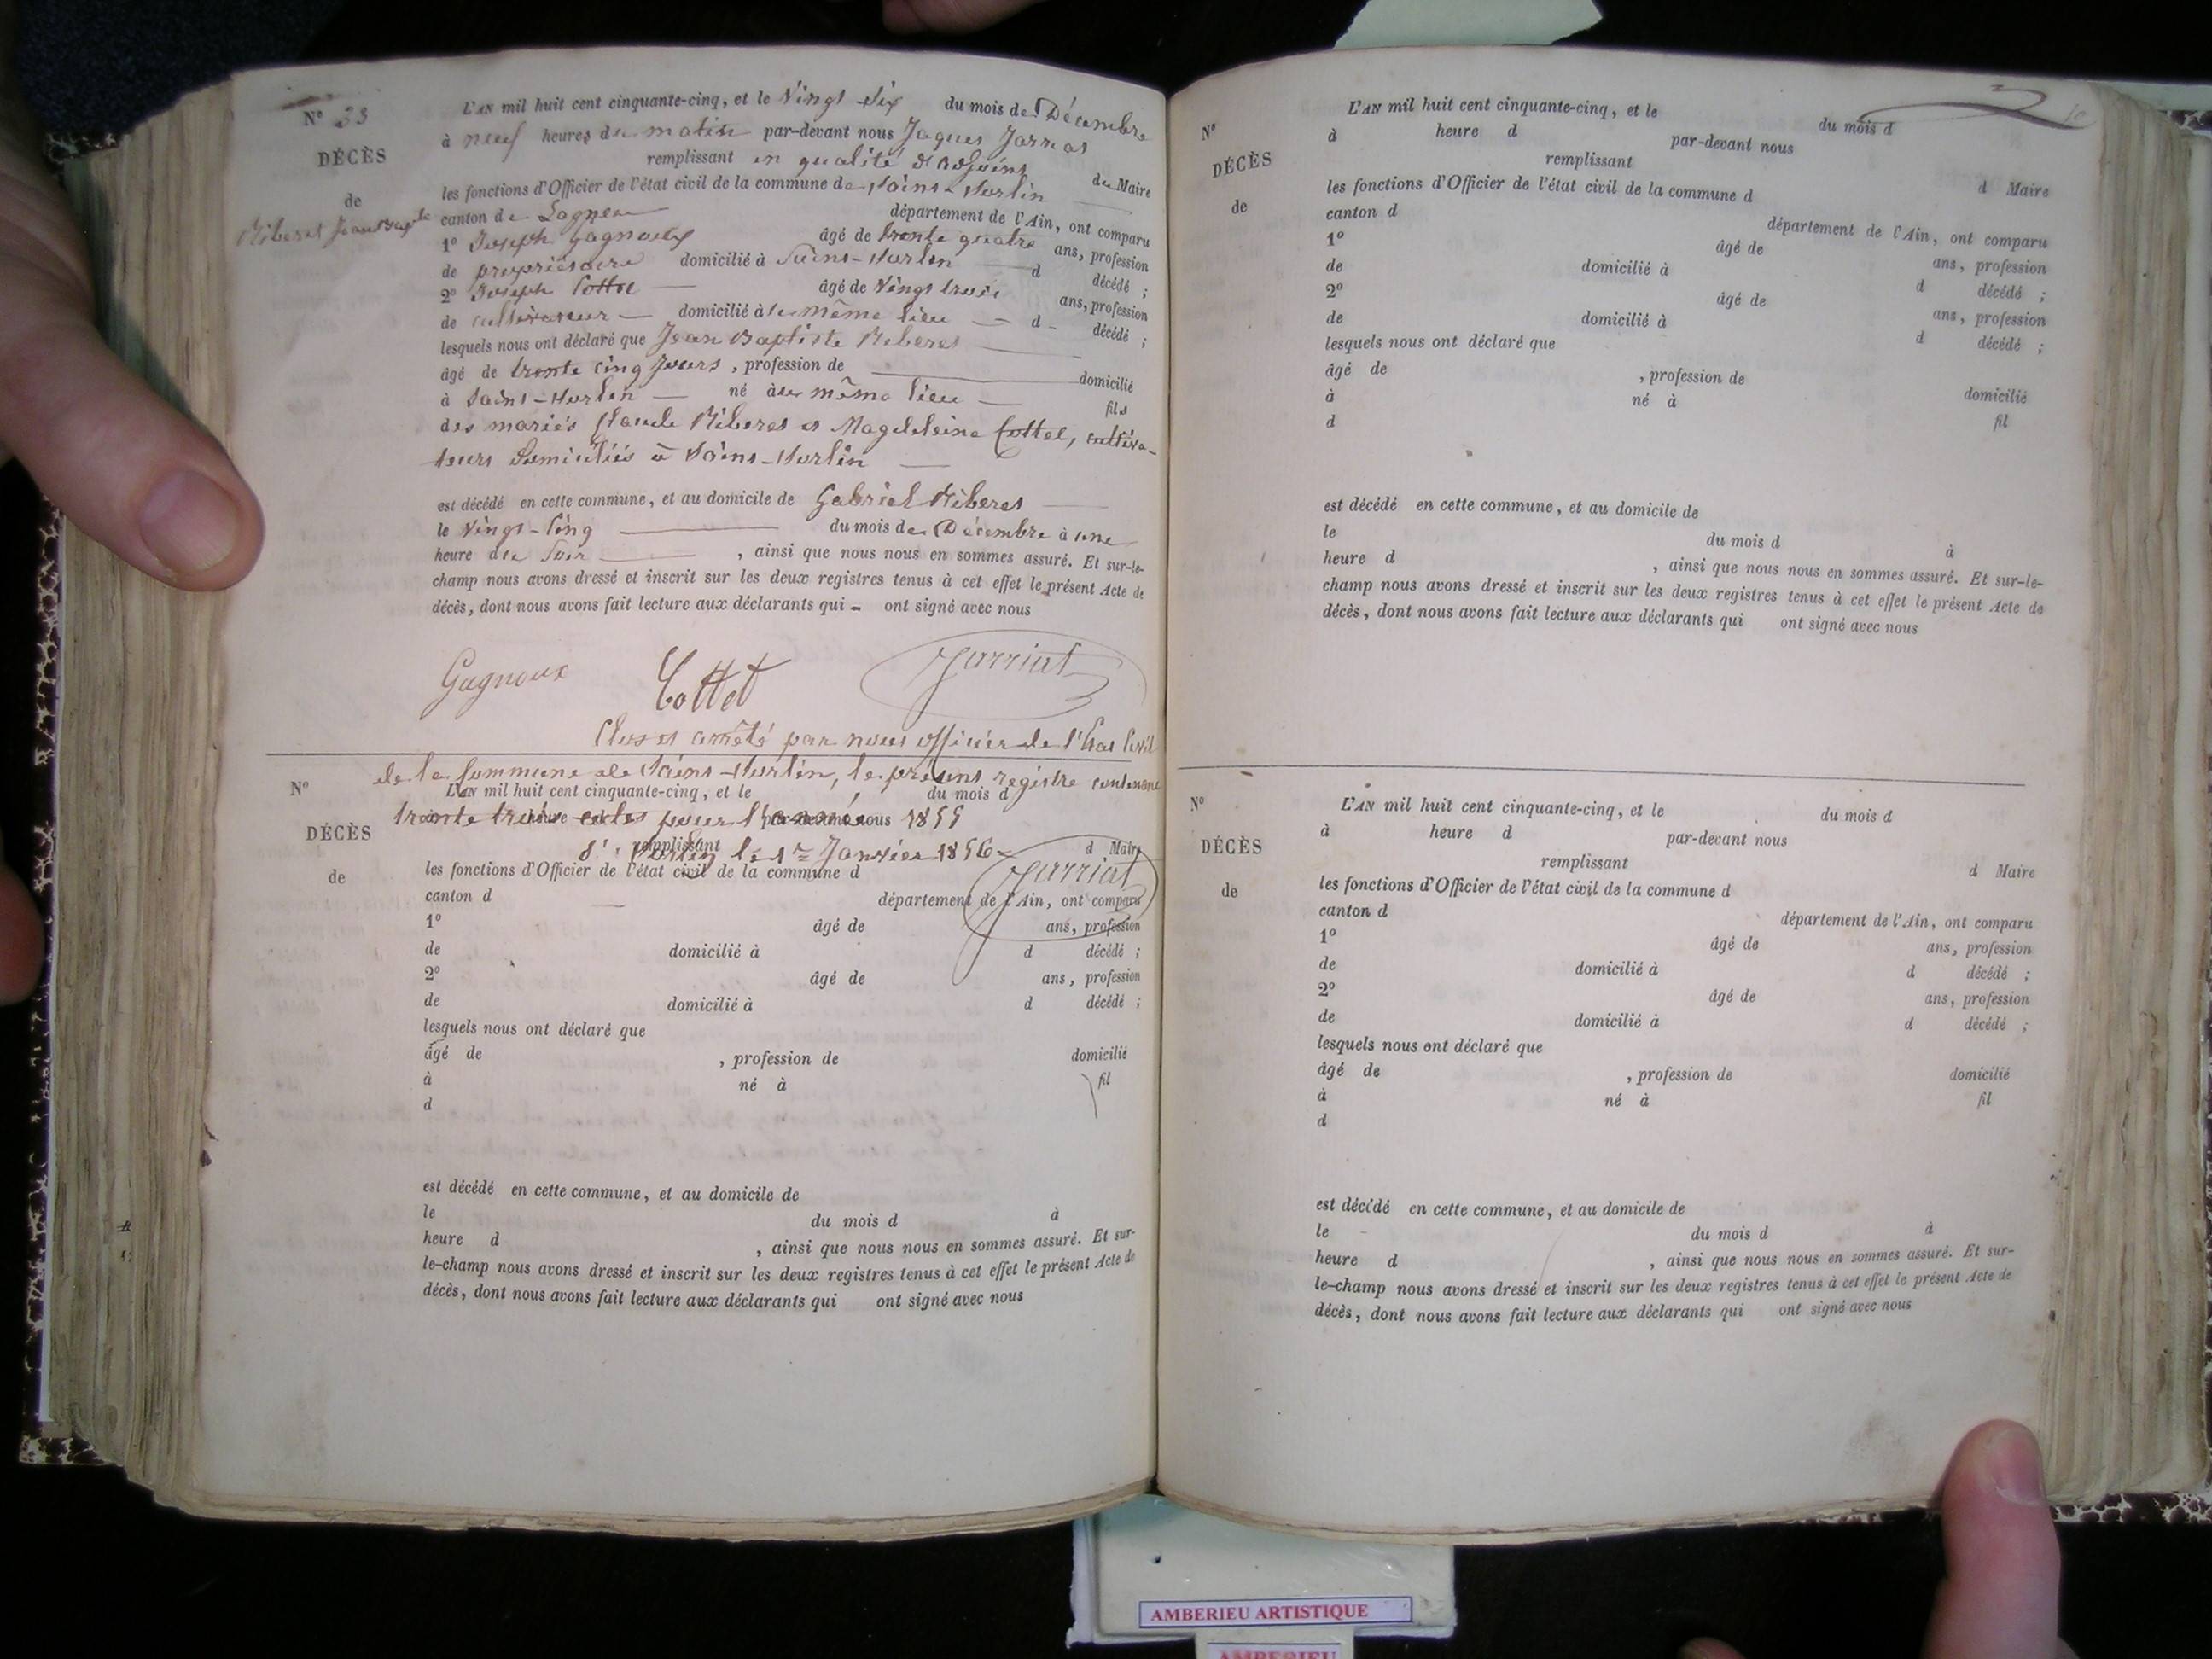 N° 33
DÉCÈS
de
Riberet Jean Baptiste
L'AN mil huit cent cinquante-cinq, et le Vingt-Six du mois de Décembre
à neuf heures du matin par-devant nous Jaques Jarriat
remplissant en qualité d'adjoint du Maire
les fonctions d'Officier de l'état civil de la commune de Saint-Sorlin
canton de Lagnieu département de l'Ain, ont comparu
1° Joseph Gagnoux âgé de trente quatre ans, profession
de propriétaire domicilié à Saint-Sorlin d décédé ;
2° Joseph Cottet âgé de Vingt trois ans, profession
de cultivateur domicilié à au même lieu d décédé ;
lesquels nous ont déclaré que Jean Baptiste Riberet
âgé de trente cinq jours, profession de domicilié
à Saint-Sorlin né à au même lieu fils
des mariés Claude Riberet et Magdeleine Cottet, cultiva-
teurs Domiciliés à Saint-Sorlin
est décédé en cette commune, et au domicile de Gabriel Riberet
le Vingt-Cinq du mois de Décembre à une
heure du Soir, ainsi que nous nous en sommes assuré. Et sur-le-
champ nous avons dressé et inscrit sur les deux registres tenus à cet effet le présent Acte de
décès, dont nous avons fait lecture aux déclarants qui ont signé avec nous
Gagnoux Cottet Jarriat
Clos et arrêté par nous officier de l'état Civil
de la Commune de Saint-Sorlin, le présent registre contenant
trente trois actes pour l'année 1855
St. Sorlin le 1er Janvier 1856
Jarriat
N°
DÉCÈS
de
L'AN mil huit cent cinquante-cinq, et le du mois d
heure par-devant nous
remplissant d Maire
les fonctions d'Officier de l'état civil de la commune d
canton d département de l'Ain, ont comparu
1° âgé de ans, profession
de domicilié à d décédé ;
2° âgé de ans, profession
de domicilié à d décédé ;
lesquels nous ont déclaré que
âgé de , profession de domicilié
à né à fil
d
est décédé en cette commune, et au domicile de
le du mois d à
heure d , ainsi que nous nous en sommes assuré. Et sur-
le-champ nous avons dressé et inscrit sur les deux registres tenus à cet effet le présent Acte de
décès, dont nous avons fait lecture aux déclarants qui ont signé avec nous
N°
DÉCÈS
de
L'AN mil huit cent cinquante-cinq, et le du mois d
à heure d par-devant nous
remplissant d Maire
les fonctions d'Officier de l'état civil de la commune d
canton d département de l'Ain, ont comparu
1° âgé de ans, profession
de domicilié à d décédé ;
2° âgé de ans, profession
de domicilié à d décédé ;
lesquels nous ont déclaré que
âgé de , profession de domicilié
à né à fil
d
est décédé en cette commune, et au domicile de
le du mois d à
heure d , ainsi que nous nous en sommes assuré. Et sur-le-
champ nous avons dressé et inscrit sur les deux registres tenus à cet effet le présent Acte de
décès, dont nous avons fait lecture aux déclarants qui ont signé avec nous
N°
DÉCÈS
de
L'AN mil huit cent cinquante-cinq, et le du mois d
à heure d par-devant nous
remplissant d Maire
les fonctions d'Officier de l'état civil de la commune d
canton d département de l'Ain, ont comparu
1° âgé de ans, profession
de domicilié à d décédé ;
2° âgé de ans, profession
de domicilié à d décédé ;
lesquels nous ont déclaré que
âgé de , profession de domicilié
à né à fil
d
est décédé en cette commune, et au domicile de
le du mois d à
heure d , ainsi que nous nous en sommes assuré. Et sur-
le-champ nous avons dressé et inscrit sur les deux registres tenus à cet effet le présent Acte de
décès, dont nous avons fait lecture aux déclarants qui ont signé avec nous
AMBERIEU ARTISTIQUE
AMBERIEU